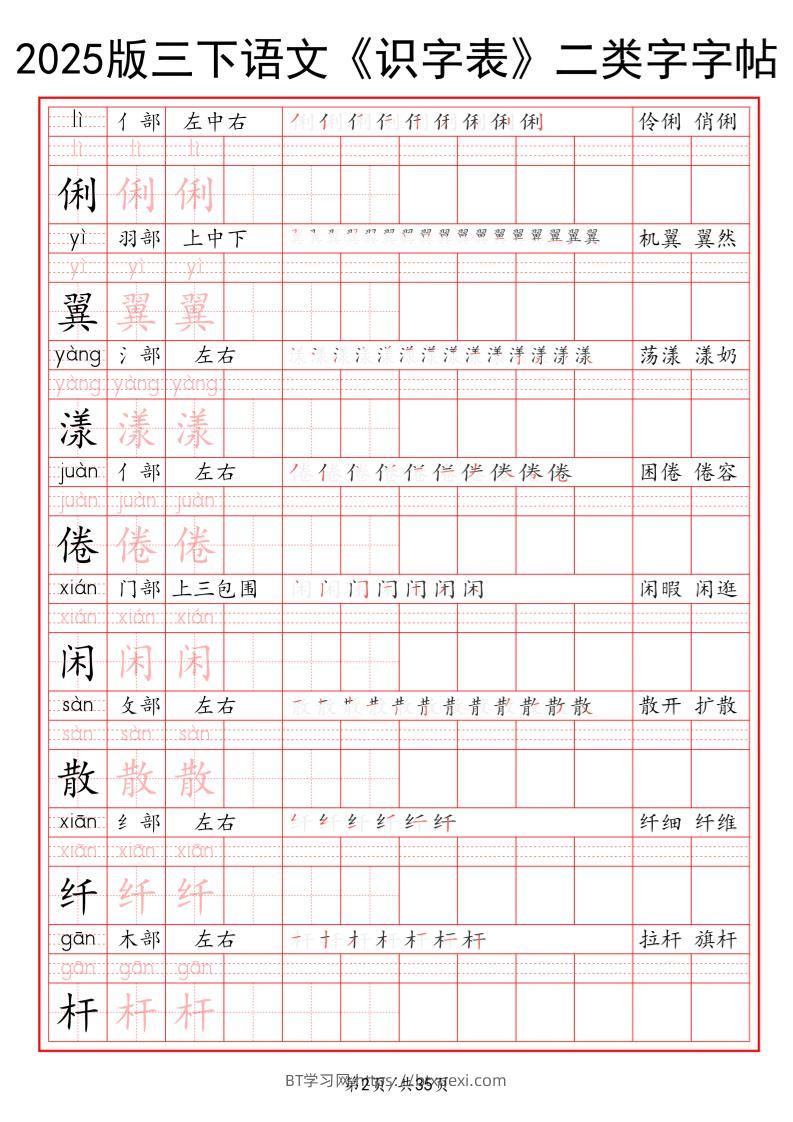 2025版三下语文《识字表》二类字字帖
lì 亻部 左中右 伶俐 俏俐
lì lì lì
俐 俐 俐
yì 羽部 上中下 机翼 翼然
yì yì yì
翼 翼 翼
yàng 氵部 左右 荡漾 漾奶
yàng yàng yàng
漾 漾 漾
juàn 亻部 左右 困倦 倦容
juàn juàn juàn
倦 倦 倦
xián 门部 上三包围 闲暇 闲逛
xián xián xián
闲 闲 闲
sàn 攵部 左右 散开 扩散
sàn sàn sàn
散 散 散
xiān 纟部 左右 纤细 纤维
xiān xiān xiān
纤 纤 纤
gān 木部 左右 拉杆 旗杆
gān gān gān
杆 杆 杆
BT学习网
第2页/共35页